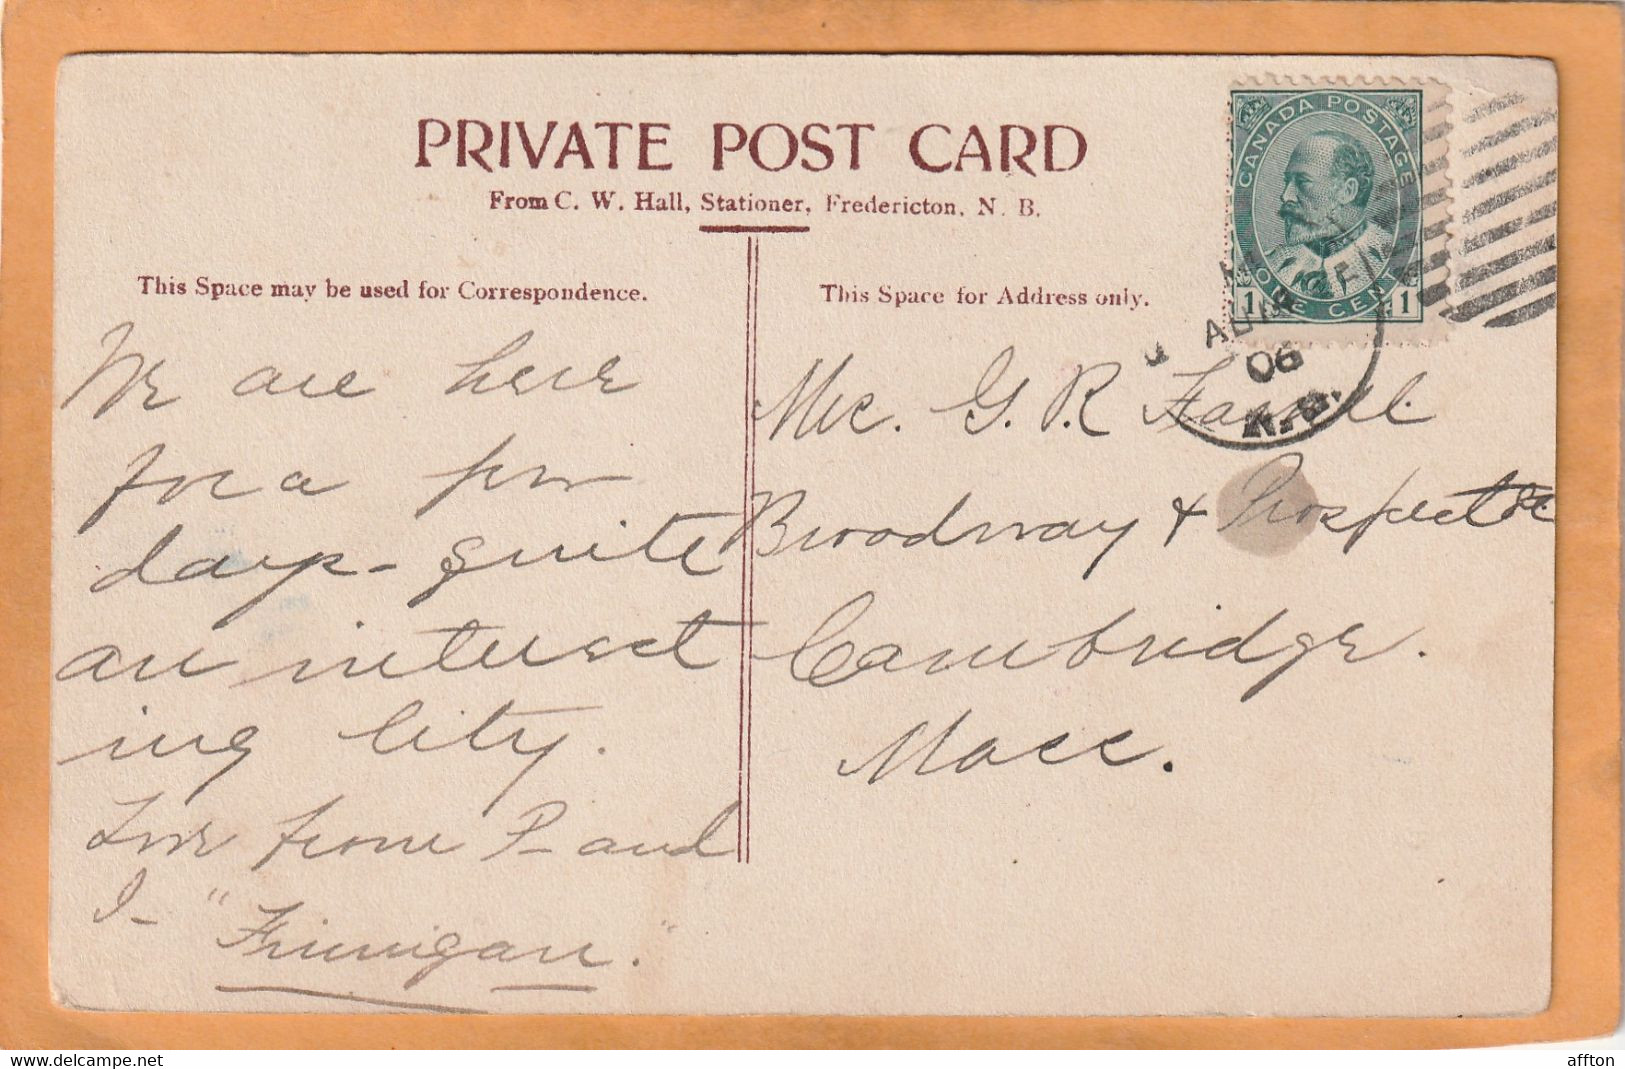 PRIVATE POST CARD
From C. W. Hall, Stationer, Fredericton, N. B.
This Space may be used for Correspondence.
We are here
for a few
days - quite
an interest
ing city.
Love from P- and
I- "Finnigan."
This Space for Address only.
CANADA POSTAGE
1 ONE CENT 1
AU
06
N.B.
Mrs. G. R.
Broadway & Prospect St.
Cambridge.
Mass.
delcampe.net
affton